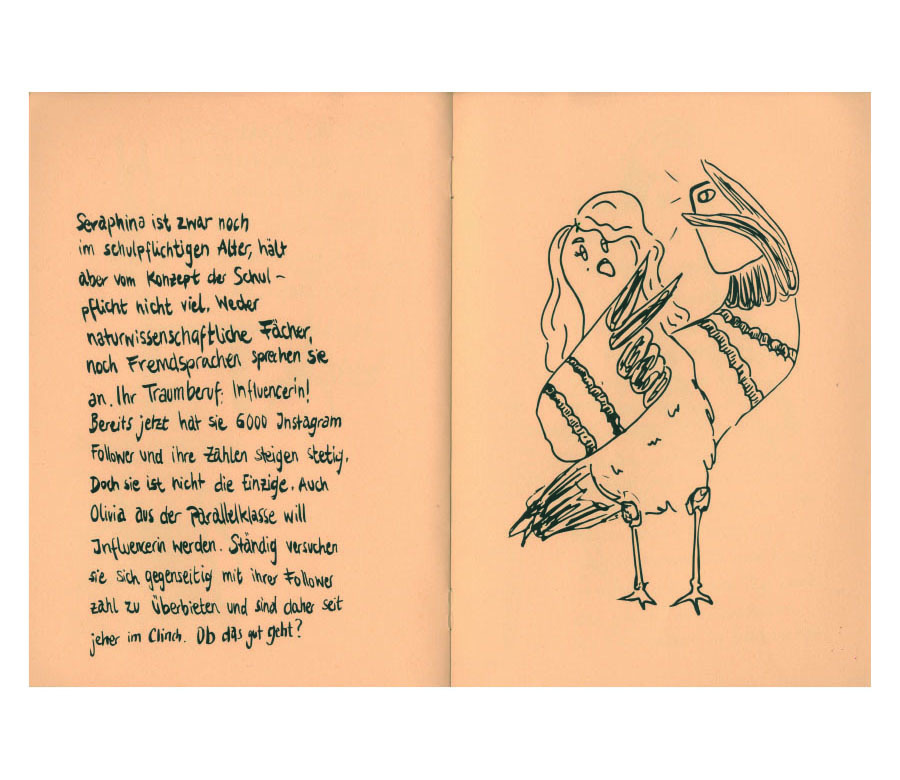 Seraphina ist zwar noch
im schulpflichtigen Alter, hält
aber vom Konzept der Schul-
pflicht nicht viel. Weder
naturwissenschaftliche Fächer,
noch Fremdsprachen sprechen sie
an. Ihr Traumberuf: Influencerin!
Bereits jetzt hat sie 6000 Instagram
Follower und ihre Zahlen steigen stetig.
Doch sie ist nicht die Einzige. Auch
Olivia aus der Parallelklasse will
Influencerin werden. Ständig versuchen
sie sich gegenseitig mit ihrer Follower
zahl zu Überbieten und sind daher seit
jeher im Clinch. Ob das gut geht?